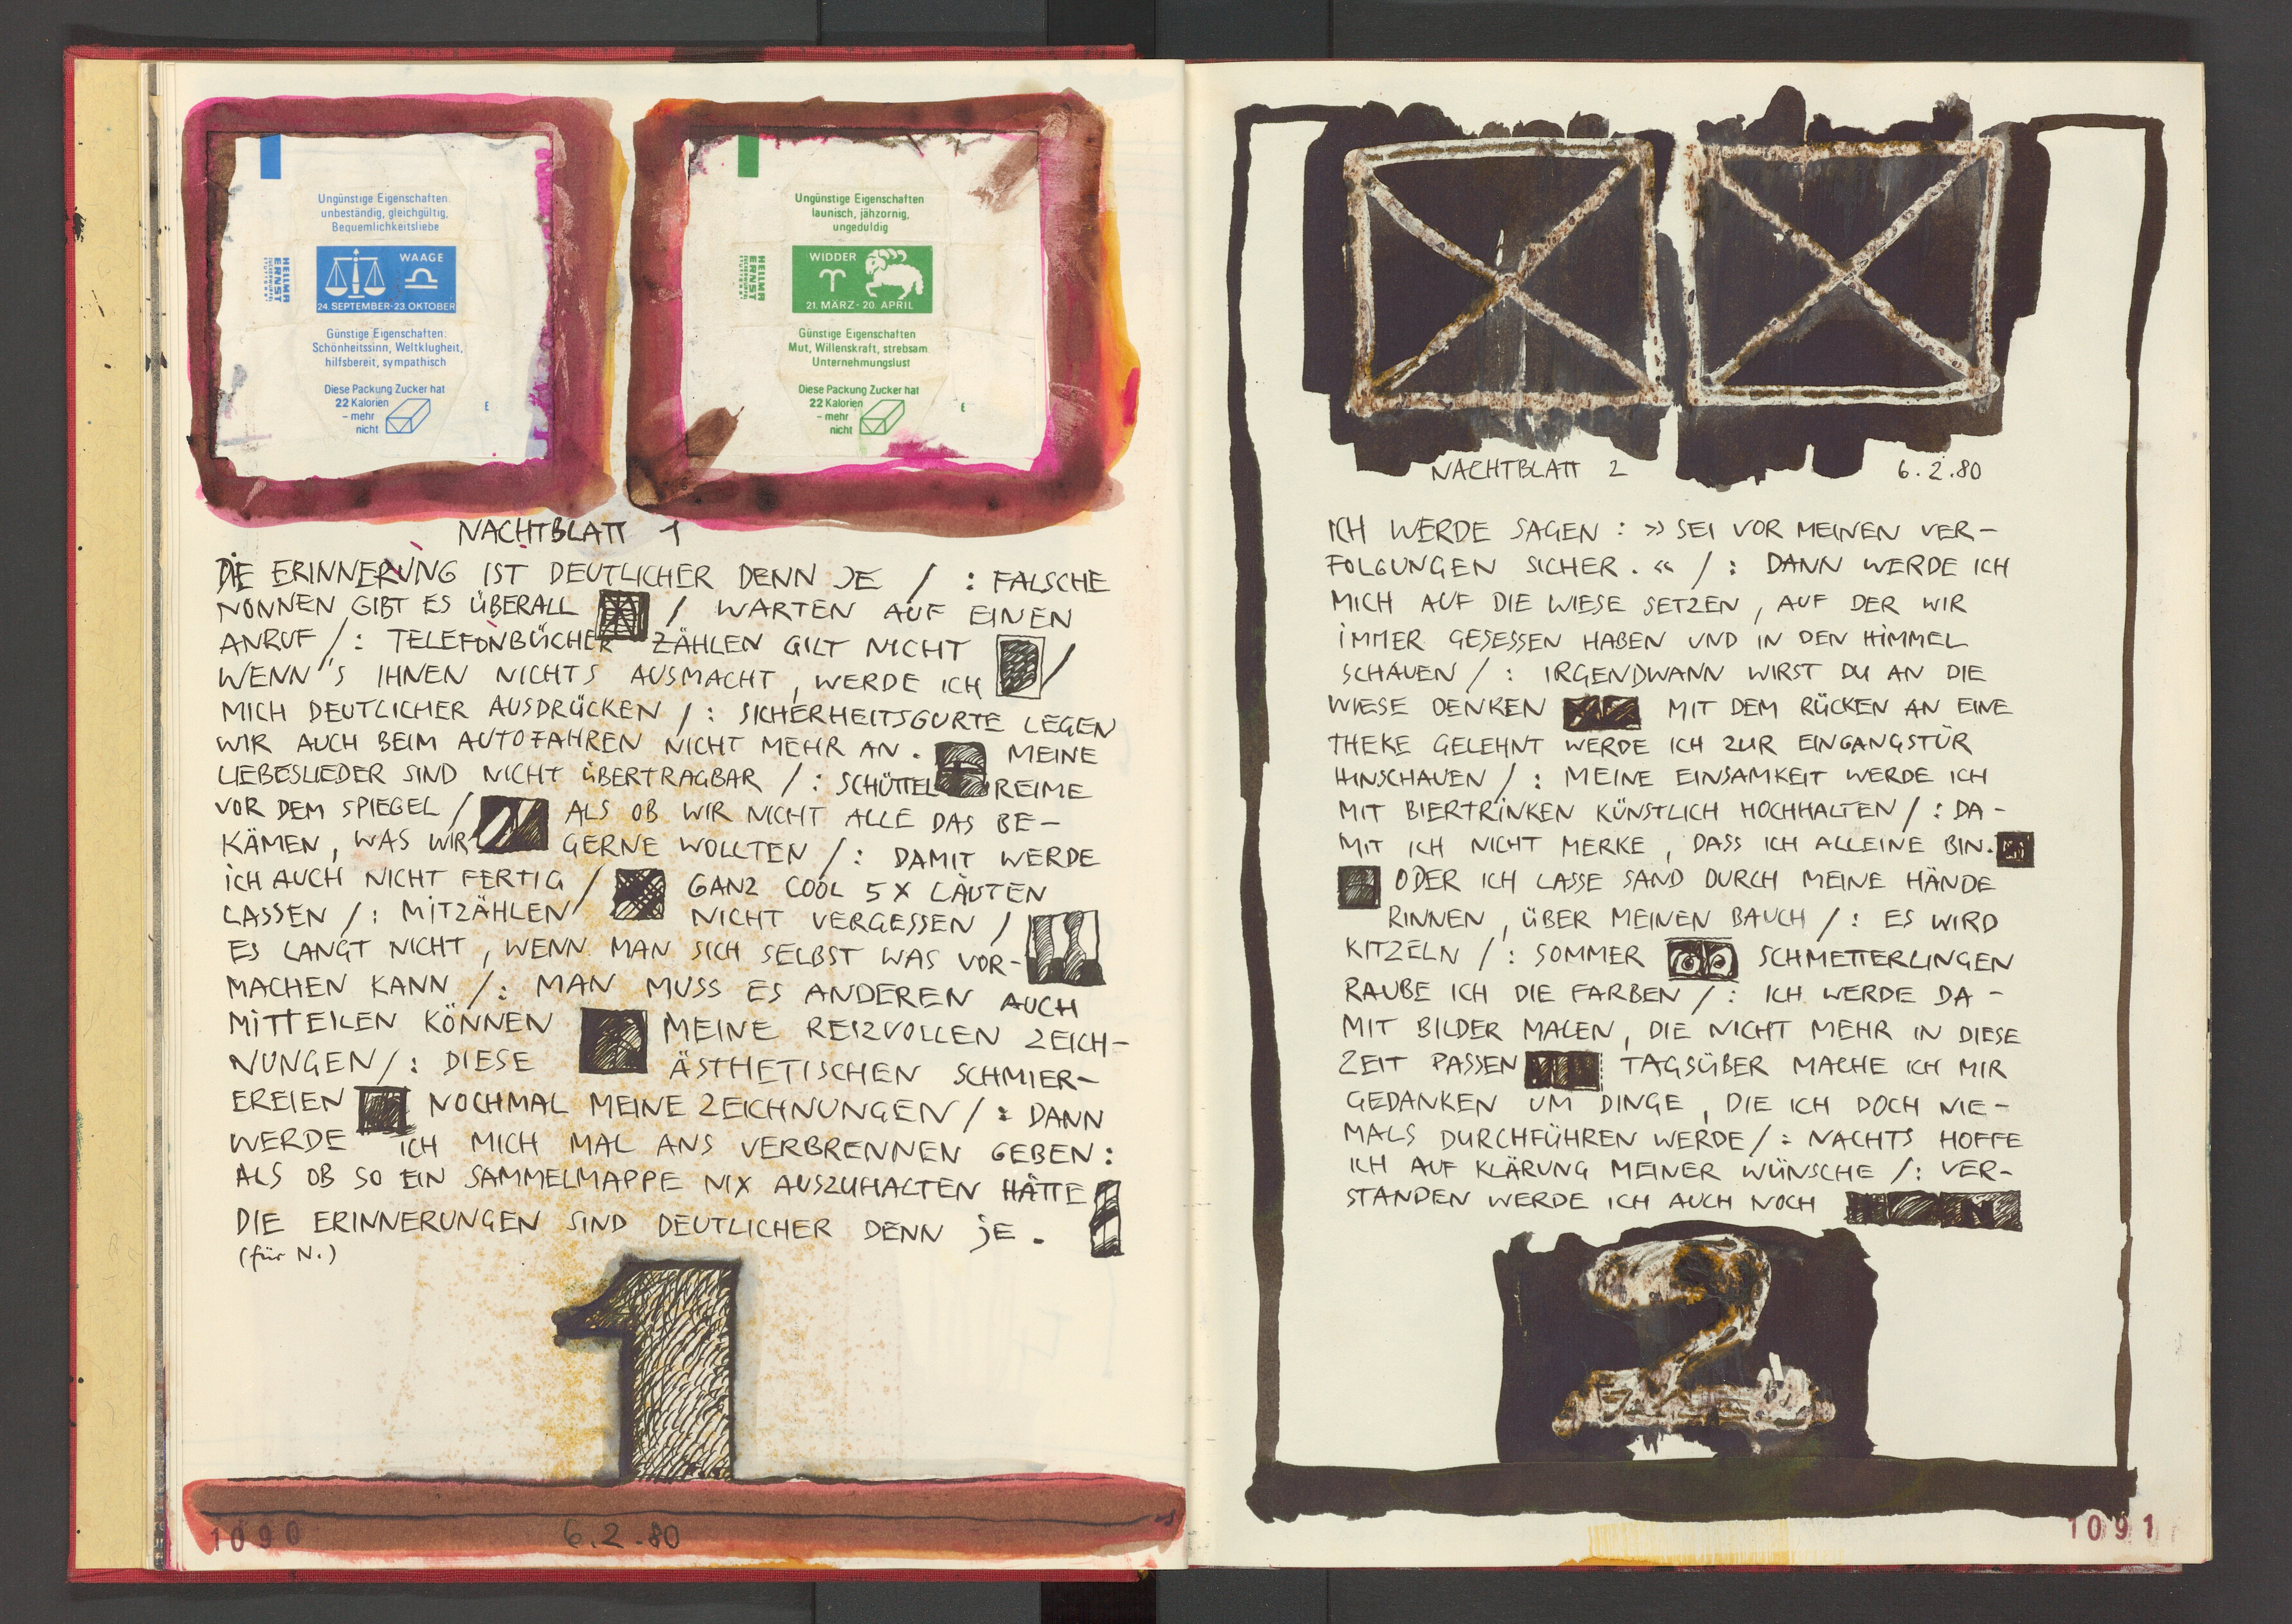 Ungünstige Eigenschaften:
unbeständig, gleichgültig,
Bequemlichkeitsliebe
HELLMA
ERNST
WAAGE
24. SEPTEMBER-23. OKTOBER
Günstige Eigenschaften:
Schönheitssinn, Weltklugheit,
hilfsbereit, sympathisch
Diese Packung Zucker hat
22 Kalorien
– mehr
nicht
E
Ungünstige Eigenschaften
launisch, jähzornig,
ungeduldig
HELLMA
ERNST
WIDDER
21. MÄRZ - 20. APRIL
Günstige Eigenschaften
Mut, Willenskraft, strebsam
Unternehmungslust
Diese Packung Zucker hat
22 Kalorien
– mehr
nicht
E
NACHTBLATT 1
DIE ERINNERUNG IST DEUTLICHER DENN JE / : FALSCHE
NONNEN GIBT ES ÜBERALL / WARTEN AUF EINEN
ANRUF / : TELEFONBÜCHER ZÄHLEN GILT NICHT /
WENN'S IHNEN NICHTS AUSMACHT, WERDE ICH
MICH DEUTLICHER AUSDRÜCKEN / : SICHERHEITSGURTE LEGEN
WIR AUCH BEIM AUTOFAHREN NICHT MEHR AN. MEINE
LIEBESLIEDER SIND NICHT ÜBERTRAGBAR / : SCHÜTTEL REIME
VOR DEM SPIEGEL / ALS OB WIR NICHT ALLE DAS BE-
KÄMEN, WAS WIR GERNE WOLLTEN / : DAMIT WERDE
ICH AUCH NICHT FERTIG / GANZ COOL 5 X LÄUTEN
LASSEN / : MITZÄHLEN NICHT VERGESSEN /
ES LANGT NICHT, WENN MAN SICH SELBST WAS VOR-
MACHEN KANN / : MAN MUSS ES ANDEREN AUCH
MITTEILEN KÖNNEN MEINE REIZVOLLEN ZEICH-
NUNGEN / : DIESE ÄSTHETISCHEN SCHMIER-
EREIEN NOCHMAL MEINE ZEICHNUNGEN / : DANN
WERDE ICH MICH MAL ANS VERBRENNEN GEBEN :
ALS OB SO EIN SAMMELMAPPE NIX AUSZUHALTEN HÄTTE
DIE ERINNERUNGEN SIND DEUTLICHER DENN JE .
(für N.)
1
1090
6.2.80
NACHTBLATT 2 6.2.80
ICH WERDE SAGEN : » SEI VOR MEINEN VER-
FOLGUNGEN SICHER . « / : DANN WERDE ICH
MICH AUF DIE WIESE SETZEN, AUF DER WIR
IMMER GESESSEN HABEN UND IN DEN HIMMEL
SCHAUEN / : IRGENDWANN WIRST DU AN DIE
WIESE DENKEN MIT DEM RÜCKEN AN EINE
THEKE GELEHNT WERDE ICH ZUR EINGANGSTÜR
HINSCHAUEN / : MEINE EINSAMKEIT WERDE ICH
MIT BIERTRINKEN KÜNSTLICH HOCHHALTEN / : DA-
MIT ICH NICHT MERKE, DASS ICH ALLEINE BIN.
ODER ICH LASSE SAND DURCH MEINE HÄNDE
RINNEN, ÜBER MEINEN BAUCH / : ES WIRD
KITZELN / : SOMMER SCHMETTERLINGEN
RAUBE ICH DIE FARBEN / : ICH WERDE DA-
MIT BILDER MALEN, DIE NICHT MEHR IN DIESE
ZEIT PASSEN TAGSÜBER MACHE ICH MIR
GEDANKEN UM DINGE, DIE ICH DOCH NIE-
MALS DURCHFÜHREN WERDE / : NACHTS HOFFE
ICH AUF KLÄRUNG MEINER WÜNSCHE / : VER-
STANDEN WERDE ICH AUCH NOCH
2
1091